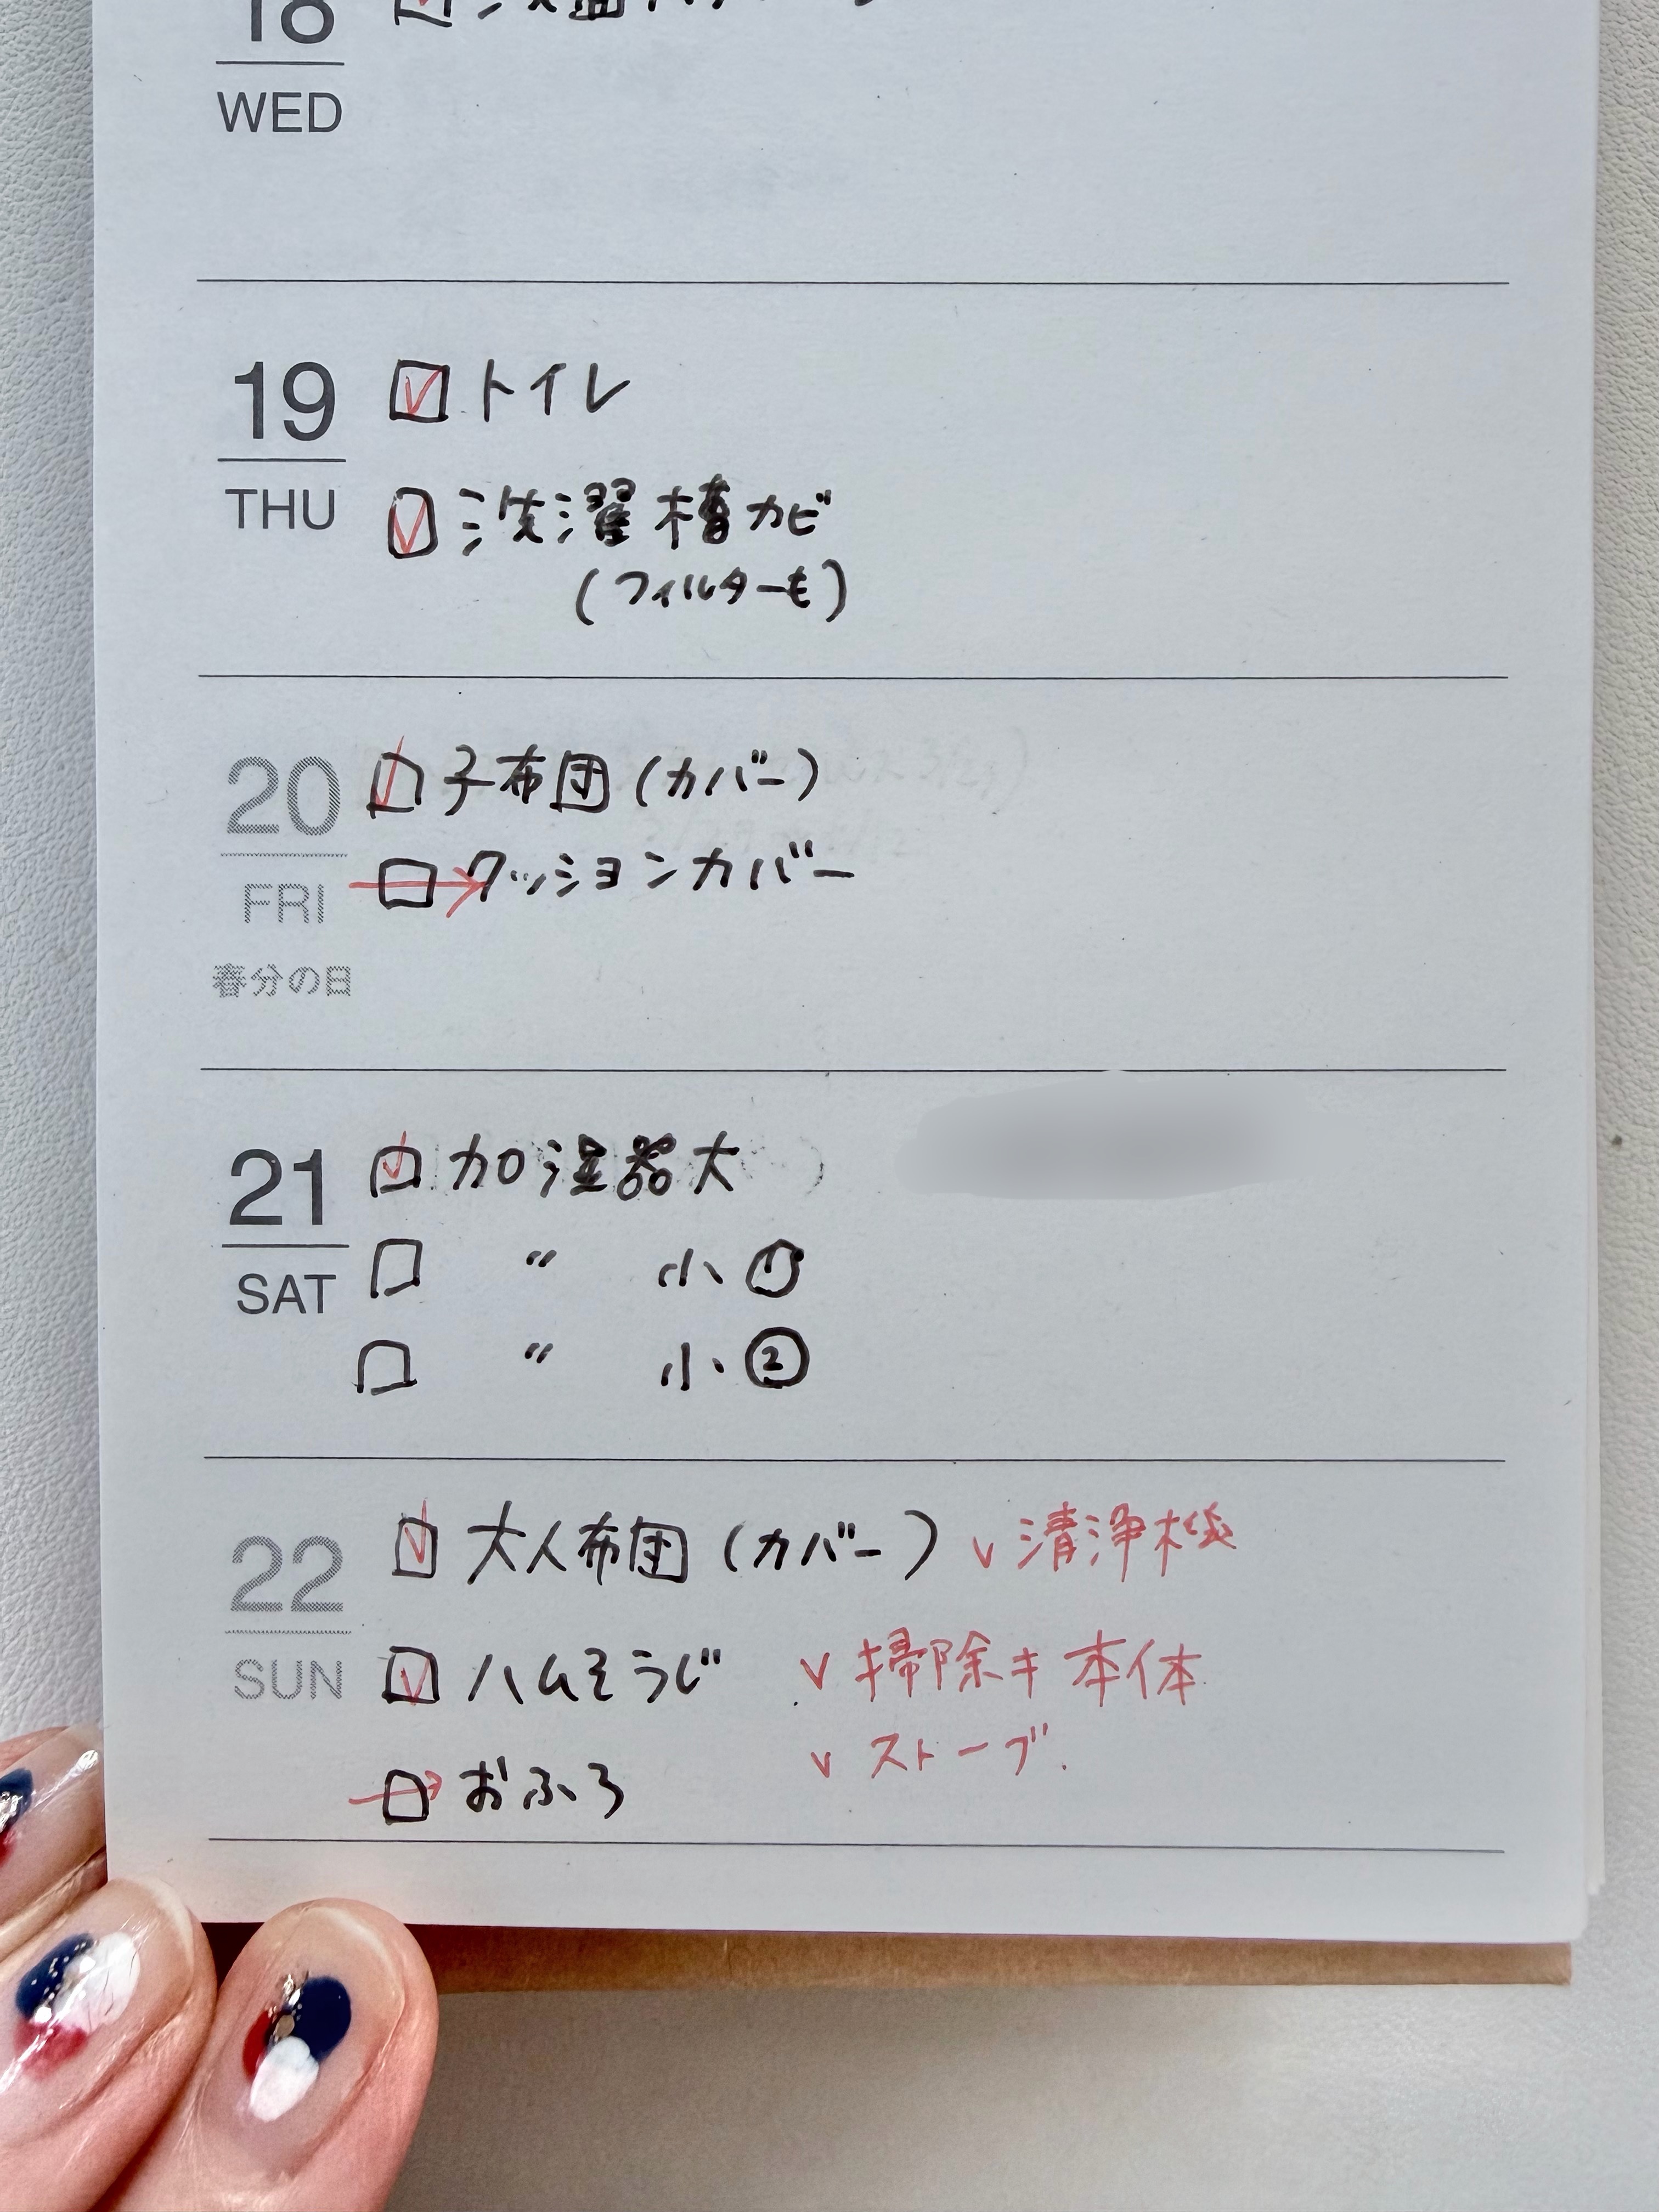 18
WED
19
THU
トイレ
洗濯槽カビ
(フィルターも)
20
FRI
春分の日
子布団(カバー)
クッションカバー
21
SAT
加湿器大
〃 小①
〃 小②
22
SUN
大人布団(カバー) ✓清浄機
ハムそうじ ✓掃除キ本体
✓ストーブ.
おふろ